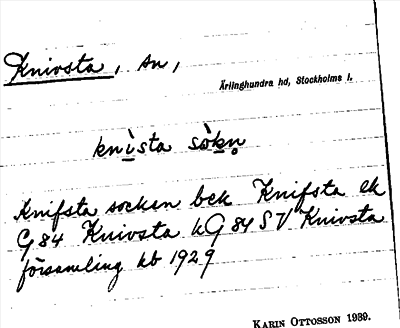 Knivsta, sn,
Ärlinghundra hd, Stockholms l.
knìsta sòkṇ
Knifsta socken bek Knifsta ek
G 84 Knivsta kG 84 SV Knivsta
församling kb 1929
KARIN OTTOSSON 1989.